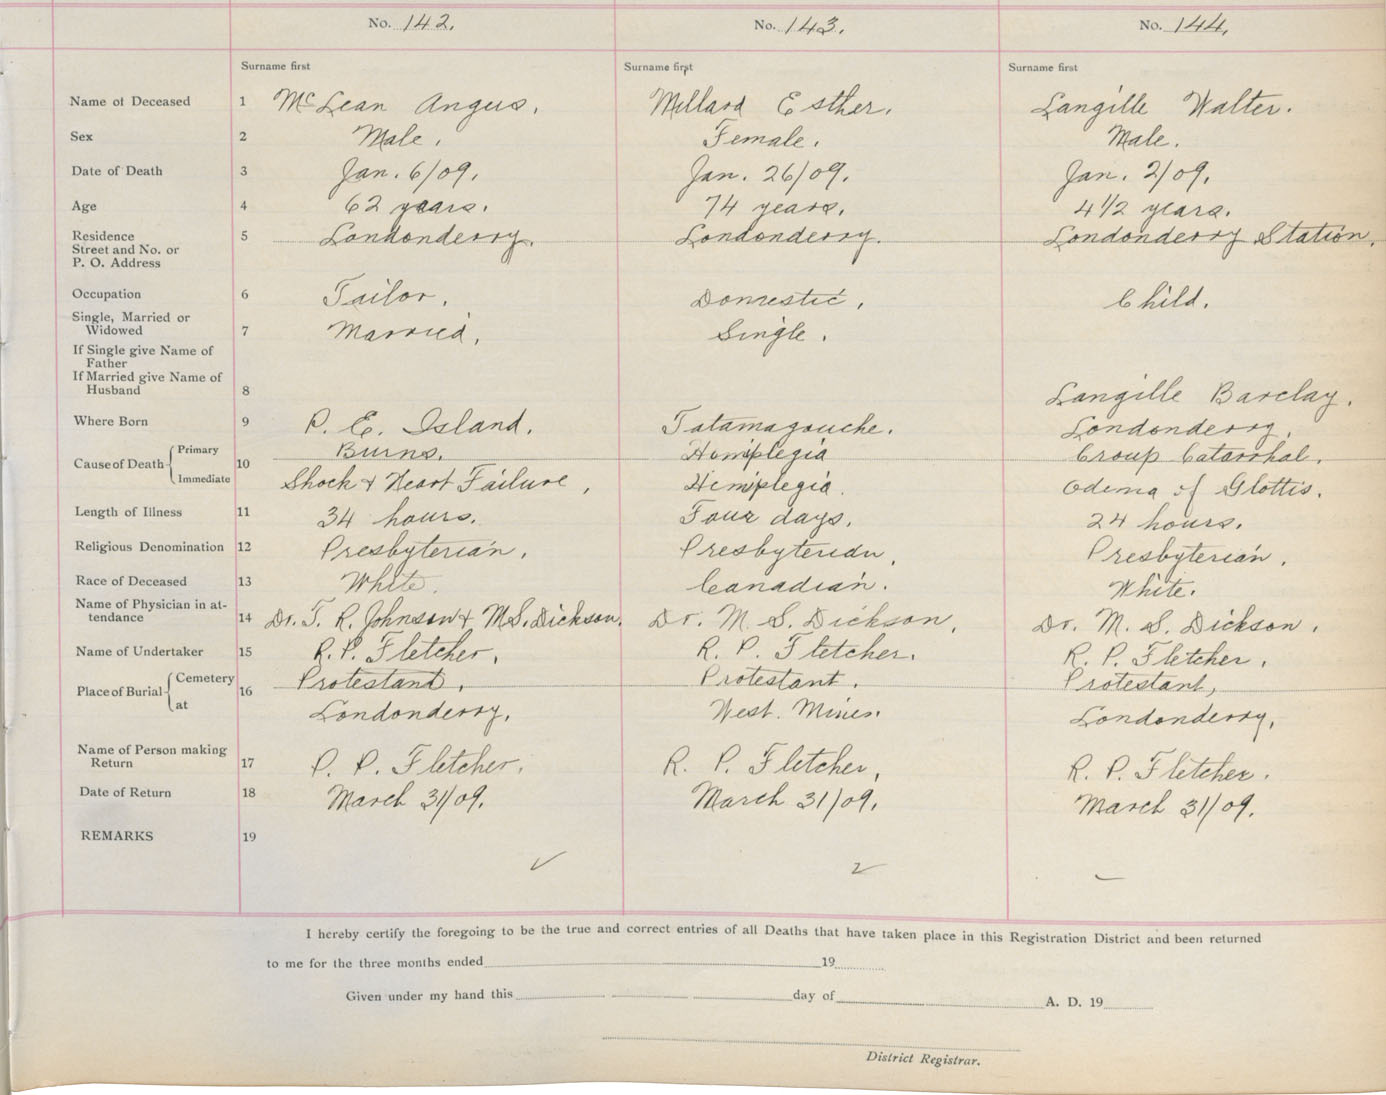 No. 142. No. 143. No. 144.
Surname first Surname first Surname first
Name of Deceased 1 McLean Angus. Millard Esther. Langille Walter.
Sex 2 Male. Female. Male.
Date of Death 3 Jan. 6/09. Jan. 26/09. Jan. 2/09.
Age 4 62 years. 74 years. 4 1/2 years.
Residence 5 Londonderry. Londonderry. Londonderry Station.
Street and No. or
P. O. Address
Occupation 6 Tailor. Domestic. Child.
Single, Married or
Widowed 7 Married. Single.
If Single give Name of
Father
If Married give Name of
Husband 8 Langille Barclay.
Where Born 9 P. E. Island. Tatamagouche. Londonderry.
Cause of Death Primary 10 Burns. Hemiplegia Croup Catarrhal.
Immediate Shock & Heart Failure, Hemiplegia. Odema of Glottis.
Length of Illness 11 34 hours. Four days. 24 hours.
Religious Denomination 12 Presbyterian. Presbyterian. Presbyterian.
Race of Deceased 13 White. Canadian. White.
Name of Physician in at-
tendance 14 Dr. T. R. Johnson & M.S. Dickson. Dr. M. S. Dickson. Dr. M. S. Dickson.
Name of Undertaker 15 R. P. Fletcher. R. P. Fletcher. R. P. Fletcher.
Place of Burial Cemetery 16 Protestant, Protestant. Protestant,
at Londonderry. West. Mines. Londonderry.
Name of Person making
Return 17 P. P. Fletcher. R. P. Fletcher, R. P. Fletcher.
Date of Return 18 March 31/09. March 31/09. March 31/09.
REMARKS 19
I hereby certify the foregoing to be the true and correct entries of all Deaths that have taken place in this Registration District and been returned
to me for the three months ended 19
Given under my hand this day of A. D. 19
District Registrar.